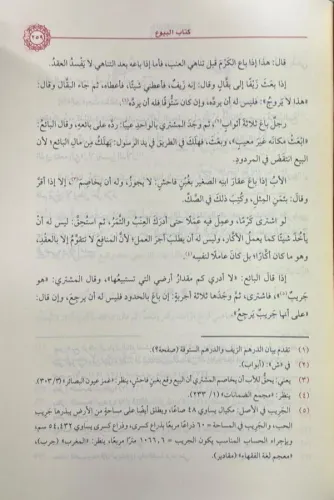 كتاب البيوع
٢٥٩
قال: هذا إذا باع الكَرْمَ قبل تناهي العنب، فأما إذا باعه بعد التناهي لا يَفْسدُ العقدُ.
إذا بعثَ زَيْفًا إلى بقَّالٍ وقال: إنه زَيفٌ، فأعطِني شيئًا، فأعطاه، ثم جَاءَ البقَّال وقال:
«هذا لا يَروجُ»: فليس له أن يردَّه، وإن كان سَتُّوقًا فله أن يردَّه(١).
رجلٌ باعَ ثلاثةَ أثوابٍ(٢)، ثم وَجدَ المشتري بالواحدِ عيبًا: ردَّه على بائعِه، وقال البائع:
«ابْعَثْ مكانَه غيرَ معِيبٍ»، وبَعثَ، فهَلكَ في الطريق في يد الرسول: يَهْلكُ مِن مالِ البائع؛ لأن
البيع انتقَضَ في المردودِ.
الأبُ إذا باعَ عقارَ ابنِه الصغيرِ بغَبْنٍ فاحشٍ: لا يَجوزُ، وله أن يخاصِمَ(٣)، إلا إذا أقرَّ
وقال: بثمَنِ المِثلِ، وكُتبَ ذلك في الصَّكِّ.
لو اشترى كَرْمًا، وعمِلَ فيه عَملًا حتى أدركَ العِنبُ والثَّمَرُ، ثم استُحِقَّ: ليس له أنْ
يأخُذَ شيئًا كما يعمَلُ الأكَّار، وليس له أن يطلبَ أجرَ العملِ؛ لأنَّ المنافعَ لا تتقوَّم إلا بالعقدِ،
وهو ما كان أكَّارًا؛ بل كانَ عاملًا لنفسِه.
إذا قال البائع: «لا أدري كم مقدارُ أرضي التي تَستبيعُها»، وقال المشتري: «هو
جَريبٌ(٥)»، فاشترى، ثم وجَدَها ثلاثةَ أجربةٍ: إن باعَ بالحدودِ فليس له أن يرجعَ، وإن قال:
«على أنها جَريبٌ يَرجعُ».
(١) تقدم بيان الدرهم الزيف والدرهم الستوقة (صفحة؟).
(٢) في «ش»: (أبواب).
(٣) يعني: يحقُّ للأب أن يخاصم المشتري أن البيع وقع بغبن فاحشٍ. ينظر: «غمز عيون البصائر» (٣٠٣/٣).
(٤) ينظر: «مجمع الضمانات» (١/ ٢٣٣).
(٥) الجَريب في الأصل: مكيال يساوي ٤٨ صاعًا، ويطلق أيضًا على مساحةٍ من الأرض يبذرها جريب
الحب، والجريب في المساحة = ٦٠ ذراعًا مربعًا بذراع كسرى، وذراع كسرى يساوي ٥٤,٤٣٢ سم،
وبإجراء الحساب المناسب يكون الجريب = ١٠٦٦,٦ مترًا مربعًا، ينظر: «المغرب» (جرب)،
«معجم لغة الفقهاء» (مقادير).